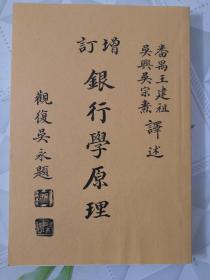 番禺王建祖
吳興吳宗燾
譯述
增訂
銀行學原理
觀復吳永題